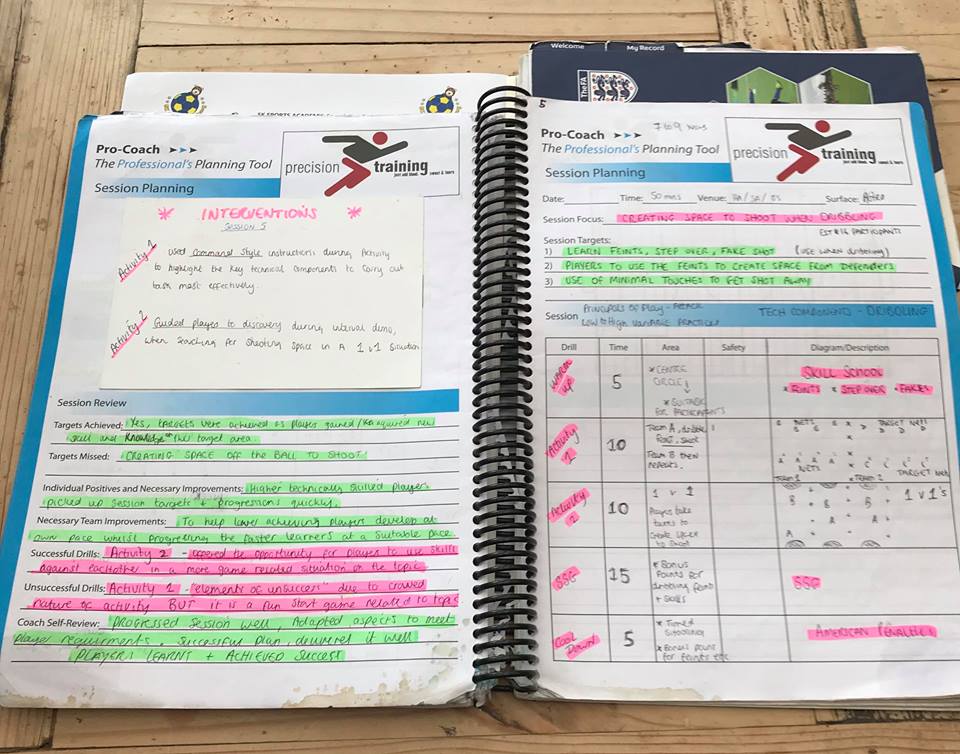 Welcome
My Record
The FA
Pro-Coach
The Professional's Planning Tool
precision
training
Session Planning
* INTERVENTIONS *
SESSION 5
Activity 1
Used Command Style instructions during Activity
to highlight the key technical components to carry out
task most effectively.
Activity 2
Guided player to discovery during interval demo,
when searching for shooting space in A 1 v 1 Situation
Session Review
Targets Achieved: Yes, targets were achieved as players gained/ acquired new
skill and knowledge on the target area.
Targets Missed: CREATING SPACE OFF THE BALL TO SHOOT
Individual Positives and Necessary Improvements: Higher technically skilled players
picked up session targets + progressions quickly.
Necessary Team Improvements: To help lower achieving players develop at
own pace whilst progressing the faster learners at a suitable pace.
Successful Drills: Activity 2 - offered the opportunity for player to use skills
against eachother in a more game related situation on the topic
Unsuccessful Drills: Activity 1 - elements of unsuccess due to crowed
nature of activity BUT it is a fun start game related to topic
Coach Self-Review: Progressed Session well, Adapted aspects to meet
player requirments, successful plan, delivered it well
PLAYERS LEARNT + ACHIEVED SUCCESS
5
Pro-Coach
7 to 9
The Professional's Planning Tool
precision
training
Session Planning
Date: Time: 50 mins Venue: Surface: Astro
Session Focus: CREATING SPACE TO SHOOT WHEN DRIBBLING
EST 16 PARTICIPANTS
Session Targets:
1) LEARN FEINTS, STEP OVER, FAKE SHOT (USE when dribbling)
2) PLAYERS TO USE THE FEINTS TO CREATE SPACE FROM DEFENDERS
3) USE OF MINIMAL TOUCHES TO GET SHOT AWAY
Session Principals of Play - Attack
Low to High Variable Practice
TECH COMPONENTS - DRIBBLING
Drill Time Area Safety Diagram/Description
WARM UP 5 * CENTRE
CIRCLE
* SUITABLE
FOR PARTICIPANTS
SKILL SCHOOL
* FEINTS * STEP OVER * FAKES
Activity 1 10 Team A, dribble
Feint, shoot
Team B then
repeats.
NETS TARGET NETS
NETS TARGET
TEAM 1 TEAM 2
Activity 2 10 1 v 1
Players take
turns to
create space
to shoot
1 v 1's
SSG 15 * Bonus
Points for
dribbling feints
+ skills
SSG
Cool Down 5 * Timed
Shooting
* Bonus points
for feints etc
AMERICAN PENALTIES